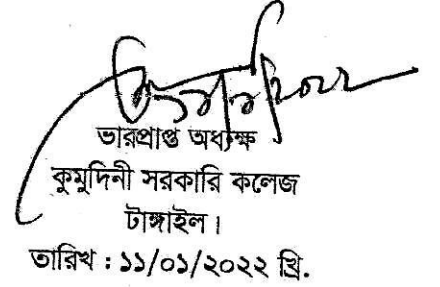 ভারপ্রাপ্ত অধ্যক্ষ
কুমুদিনী সরকারি কলেজ
টাঙ্গাইল।
তারিখ : ১১/০১/২০২২ খ্রি.